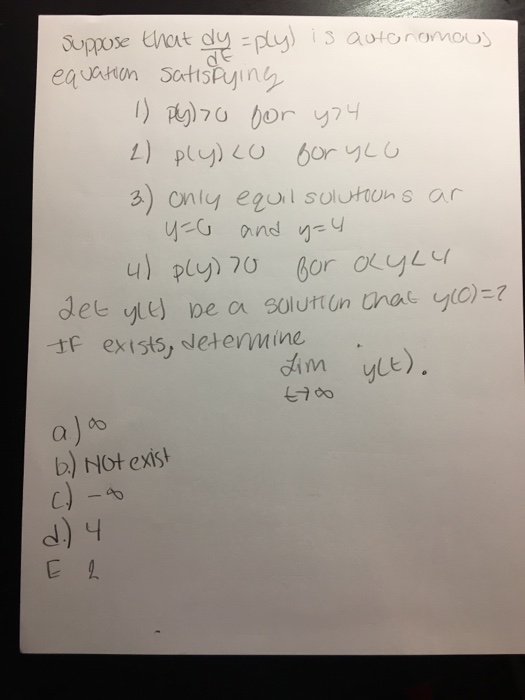 Suppose that dy/dt = p(y) is autonomous
equation satisfying
1) p(y)>0 for y>4
2) p(y)<0 for y<0
3.) only equil solutions ar
y=0 and y=4
4) p(y)>0 for 0<y<4
let y(t) be a solution that y(0)=2
If exists, determine
lim y(t).
t→∞
a) ∞
b.) Not exist
c.) -∞
d.) 4
E 2